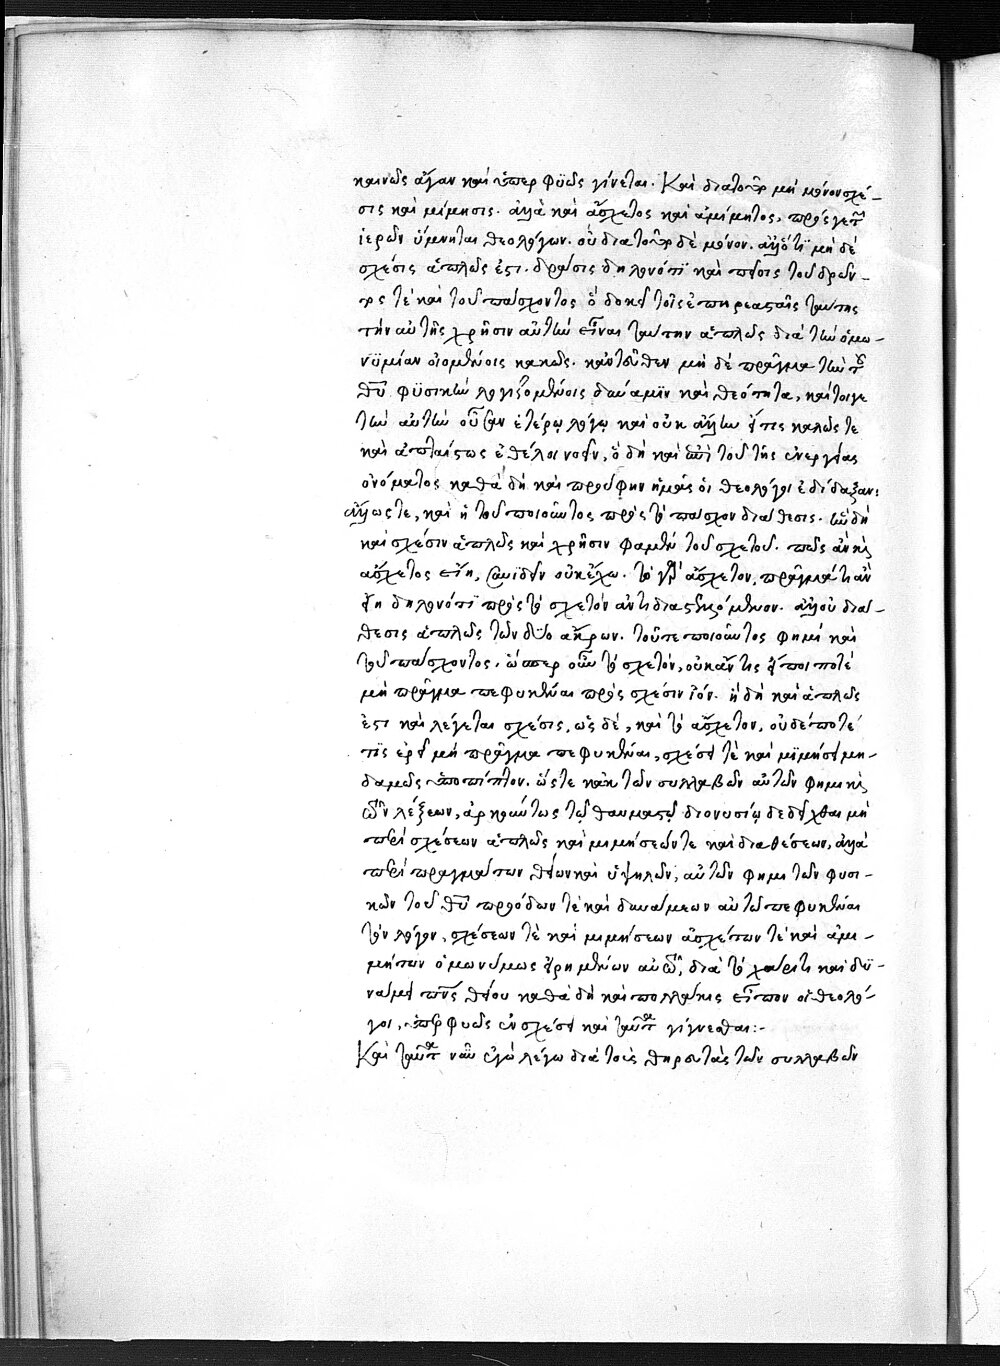 καινῶς ἄγαν καὶ ὑπερφυῶς γίνεται. Καὶ διατοῦτο μὴ μόνον σχέ-
σις καὶ μίμησις. ἀλλὰ καὶ ἄσχετος καὶ ἀμίμητος, πρός γε τῶν
ἱερῶν ὕμνηται θεολόγων. οὐ διατοῦτο δὲ μόνον. ἀλλ' ὅτι μὴ δὲ
σχέσις ἁπλῶς ἐστι. δρᾶσις δηλονότι καὶ πεῖσις τοῦ δρῶν-
τός τε καὶ τοῦ πάσχοντος ὃ δοκεῖ τοῖς ἐπηρεασταῖς ταύτης
τὴν αὐτῆς χρῆσιν αὐτὴν εἶναι ταύτην ἁπλῶς διὰ τὴν ὁμω-
νυμίαν οἰομένοις κακῶς. κἀντεῦθεν μὴ δὲ πρᾶγμα τὴν τοῦ
θεοῦ φυσικὴν λογιζομένοις δύναμιν καὶ θεότητα, καίτοιγε
τὴν αὐτὴν οὖσαν ἑτέρῳ λόγῳ καὶ οὐκ ἄλλην εἴ τις καλῶς τε
καὶ ἀπταίστως ἐθέλοι νοεῖν, ὃ δὴ καὶ ἐπὶ τοῦ τῆς ἐνεργείας
ὀνόματος καθὰ δὴ καὶ προύφην ἡμᾶς οἱ θεολόγοι ἐδίδαξαν.
ἄλλως τε, καὶ ἡ τοῦ ποιοῦντος πρὸς τὸ πάσχον διάθεσις. ἣν δὴ
καὶ σχέσιν ἁπλῶς καὶ χρῆσιν φαμὲν τοῦ σχετοῦ. πῶς ἄν τις
ἄσχετος εἴη, συνιδεῖν οὐκ ἔχω. τὸ γὰρ ἄσχετον, πρᾶγμά τι ἂν
εἴη δηλονότι πρὸς τὸ σχετὸν ἀντιδιαστελλόμενον. ἀλλ' οὐ διά-
θεσις ἁπλῶς τῶν δύο ἄκρων. τοῦτε ποιοῦντος φημὶ καὶ
τοῦ πάσχοντος. ὥσπερ οὖν τὸ σχετόν, οὐκ ἄν τις εἴποι ποτὲ
μὴ πρᾶγμα πεφυκέναι πρὸς σχέσιν ἰόν. ἣ δὴ καὶ ἁπλῶς
ἐστι καὶ λέγεται σχέσις, ὡς δὲ, καὶ τὸ ἄσχετον, οὐδέποτέ
τις ἐρεῖ μὴ πρᾶγμα πεφυκέναι, σχέσει τε καὶ μιμήσει μη-
δαμῶς ὑποπίπτον. ὥστε κἀκ τῶν συλλαβῶν αὐτῶν φημι καὶ
τῶν λέξεων, ἀρκούντως τῷ θαυμαστῷ διονυσίῳ δεδεῖχθαι μὴ
περὶ σχέσεων ἁπλῶς καὶ μιμήσεών τε καὶ διαθέσεων, ἀλλὰ
περὶ πραγμάτων θείων καὶ ὑψηλῶν, αὐτῶν φημι τῶν φυσι-
κῶν τοῦ θεοῦ προόδων τε καὶ δυνάμεων αὐτῷ πεφυκέναι
τὸν λόγον, σχέσεων τε καὶ μιμήσεων ἀσχέτων τε καὶ ἀμι-
μήτων ὁμωνύμως εἰρημένων αὐτῶν, διὰ τὸ χάριτι καὶ δυ-
νάμει πνεύματος θείου καθὰ δὴ καὶ πολλάκις εἶπον οἱ θεολό-
γοι, ὑπερφυῶς ἐν σχέσει καὶ ταῦτα γίγνεσθαι:-
Καὶ ταῦτα νῦν ἐγὼ λέγω διὰ τοὺς θηρευτὰς τῶν συλλαβῶν